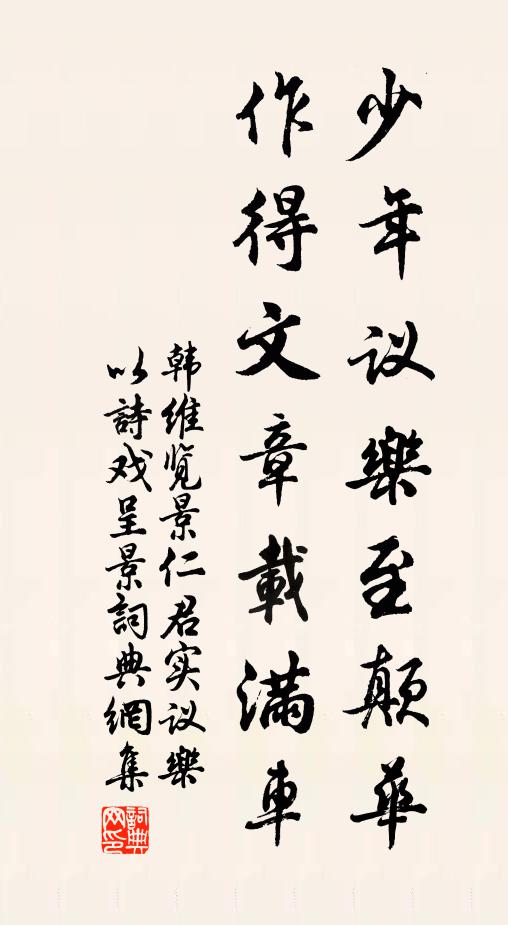 少年议樂至颠華
作得文章載满車
韩维览景仁君实议樂
以詩戏呈景詞典網集
詞典網印